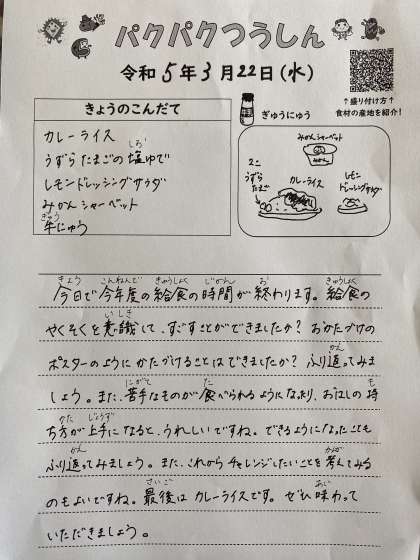 パクパクつうしん
令和5年3月22日(水)
↑盛り付け方↑
食材の産地を紹介!
きょうのこんだて
カレーライス
うずらたまごの塩ゆで
しお
レモンドレッシングサラダ
みかんシャーベット
牛にゅう
ぎゅう
ぎゅうにゅう
みかんシャーベット
みかん
2こ
うずら
たまご
カレーライス
レモン
ドレッシングサラダ
きょう こんねんど きゅうしょく じかん お きゅうしょく
今日で今年度の給食の時間が終わります。給食の
いしき
やくそくを意識して、すごすことができましたか?おかたづけの
かえ
ポスターのようにかたづけることはできましたか?ふり返ってみま
にがて た も
しょう。また、苦手なものが食べられるようになったり、おはしの持
かた じょうず
ち方が上手になると、うれしいですね。できるようになったことも
かえ かんが
ふり返ってみましょう。また、これからチャレンジしたいことを考えてみる
さいご あじ
のもよいですね。最後はカレーライスです。ぜひ味わって
いただきましょう。